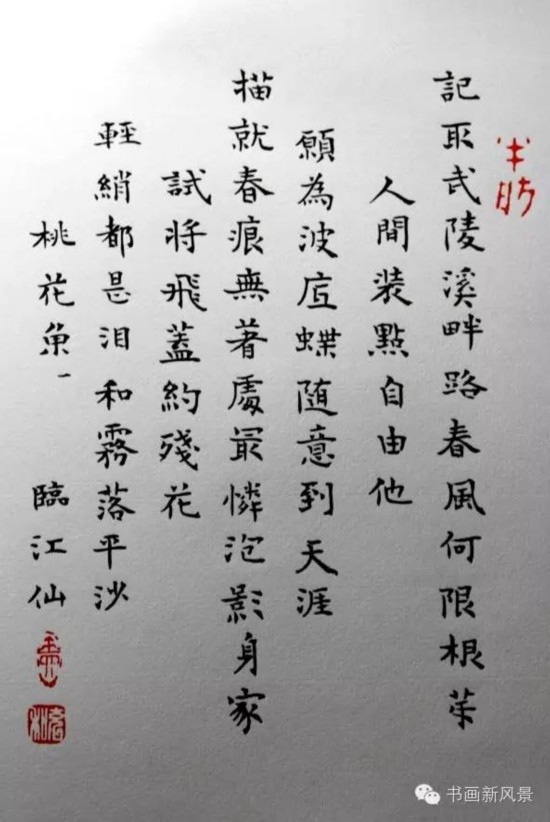 記取武陵溪畔路春風何限根芽
人間装點自由他
願為波底蝶随意到天涯
描就春痕無著處最憐泡影身家
試将飛蓋約殘花
輕綃都是泪和霧落平沙
桃花魚一 臨江仙
书画新风景